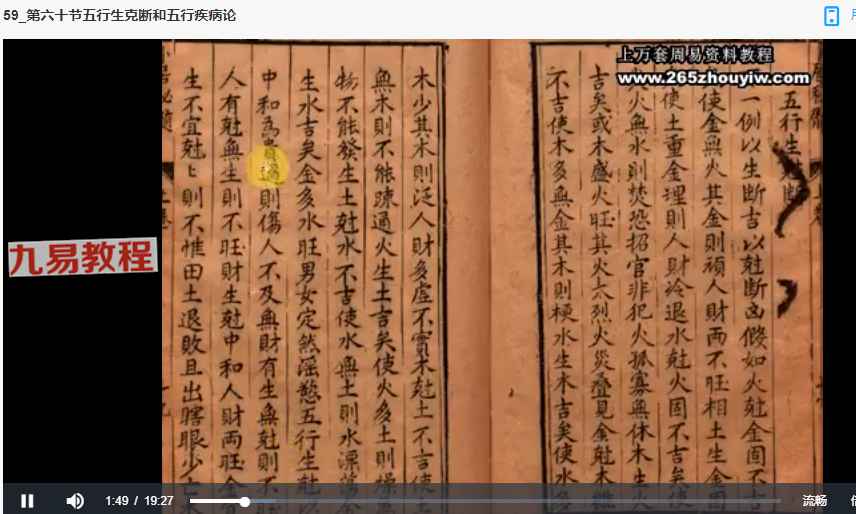 59_第六十节五行生克断和五行疾病论
上万套周易资料教程
www.265zhouyiw.com
九易教程
五行生尅斷
一例以生斷吉以尅斷凶假如火尅金固不吉
使金無火其金則頑人財兩不旺相土生金固
使土重金埋則人財冷退水尅火固不吉矣使
火無水則焚恐招官非犯火孤寡無休木生火
吉矣或木盛火旺其火太烈火災疊見金尅木雖
不吉使木多無金其木則梗水生木吉矣使水多
木少其木則泛人財多虛不實木尅土不吉使土
無木則不能疎過火生土吉矣使火多土則燥
物不能發生土尅水不吉使水無土則水漂蕩金
生水吉矣金多水旺男女定然淫慾五行生尅
中和為貴過則傷人不及無財有生無尅則不
人有尅無生則不旺財生尅中和人財兩旺金
生不宜尅〻則不惟田土退敗且出瞎眼少亡
1:49 / 19:27
流畅